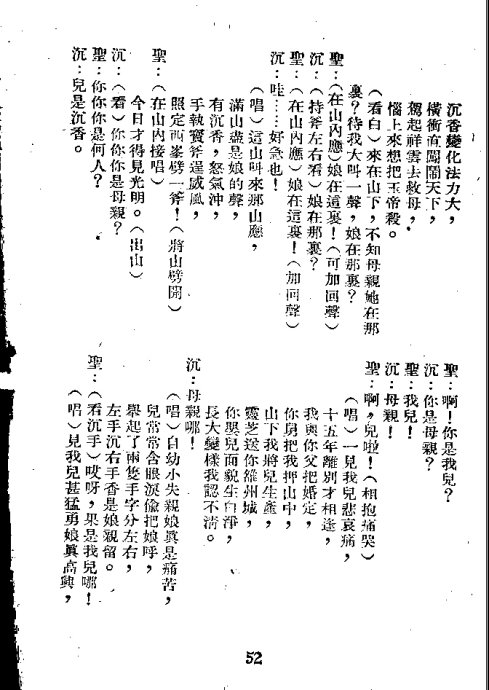 沉香變化法力大，
橫衝直闖鬧天下，
駕起祥雲去救母，
惱上來想把玉帝殺。
（看白）來在山下，不知母親她在那
裏？待我大叫一聲，娘在那裏？
聖：（在山內應）娘在這裏！（可加回聲）
沉：（持斧左右看）娘在那裏？
聖：（在山內應）娘在這裏！（加回聲）
沉：哇……好急也！
（唱）這山叫來那山應，
滿山盡是娘的聲，
有沉香，怒氣沖，
手執寶斧逞威風，
照定西峯劈一斧！（將山劈開）
聖：（在山內接唱）
今日才得見光明。（出山）
沉：（看）你你你是母親？
聖：你你你是何人？
沉：兒是沉香。
聖：啊！你是我兒？
沉：你是母親？
聖：我兒！
沉：母親！
聖：啊，兒啦！（相抱痛哭）
（唱）一見我兒悲哀痛，
十五年離別才相逢，
我與你父把婚定，
你舅把我押山中，
山下我將兒生產，
靈芝送你維州城，
你嬰兒面貌生白淨，
長大變樣我認不清。
沉：母親哪！
（唱）自幼小失親娘眞是痛苦，
兒常常含眼淚偸把娘呼，
舉起了兩隻手字分左右，
左手沉右手香是娘親留。
聖：（看沉手）哎呀，果是我兒哪！
（唱）見我兒甚猛勇娘眞高興，
52